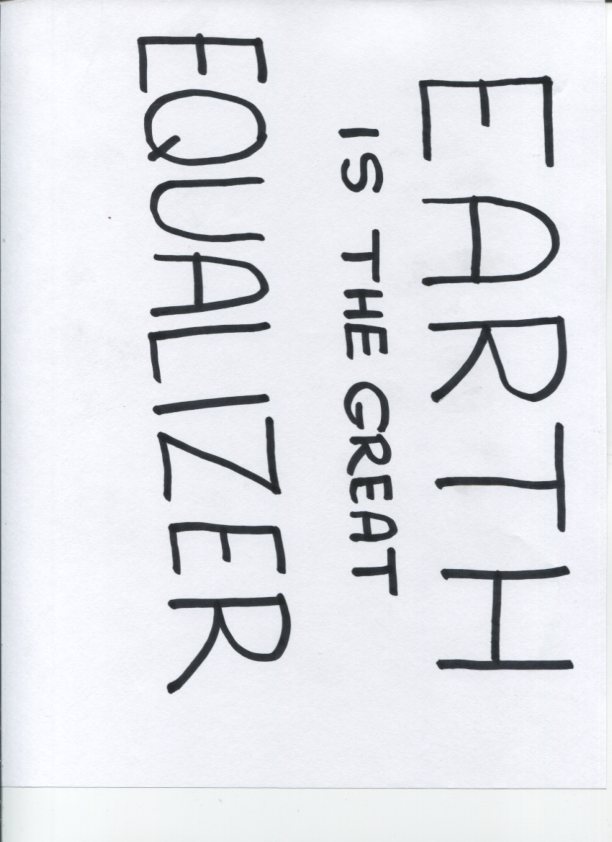 EARTH
IS THE GREAT
EQUALIZER